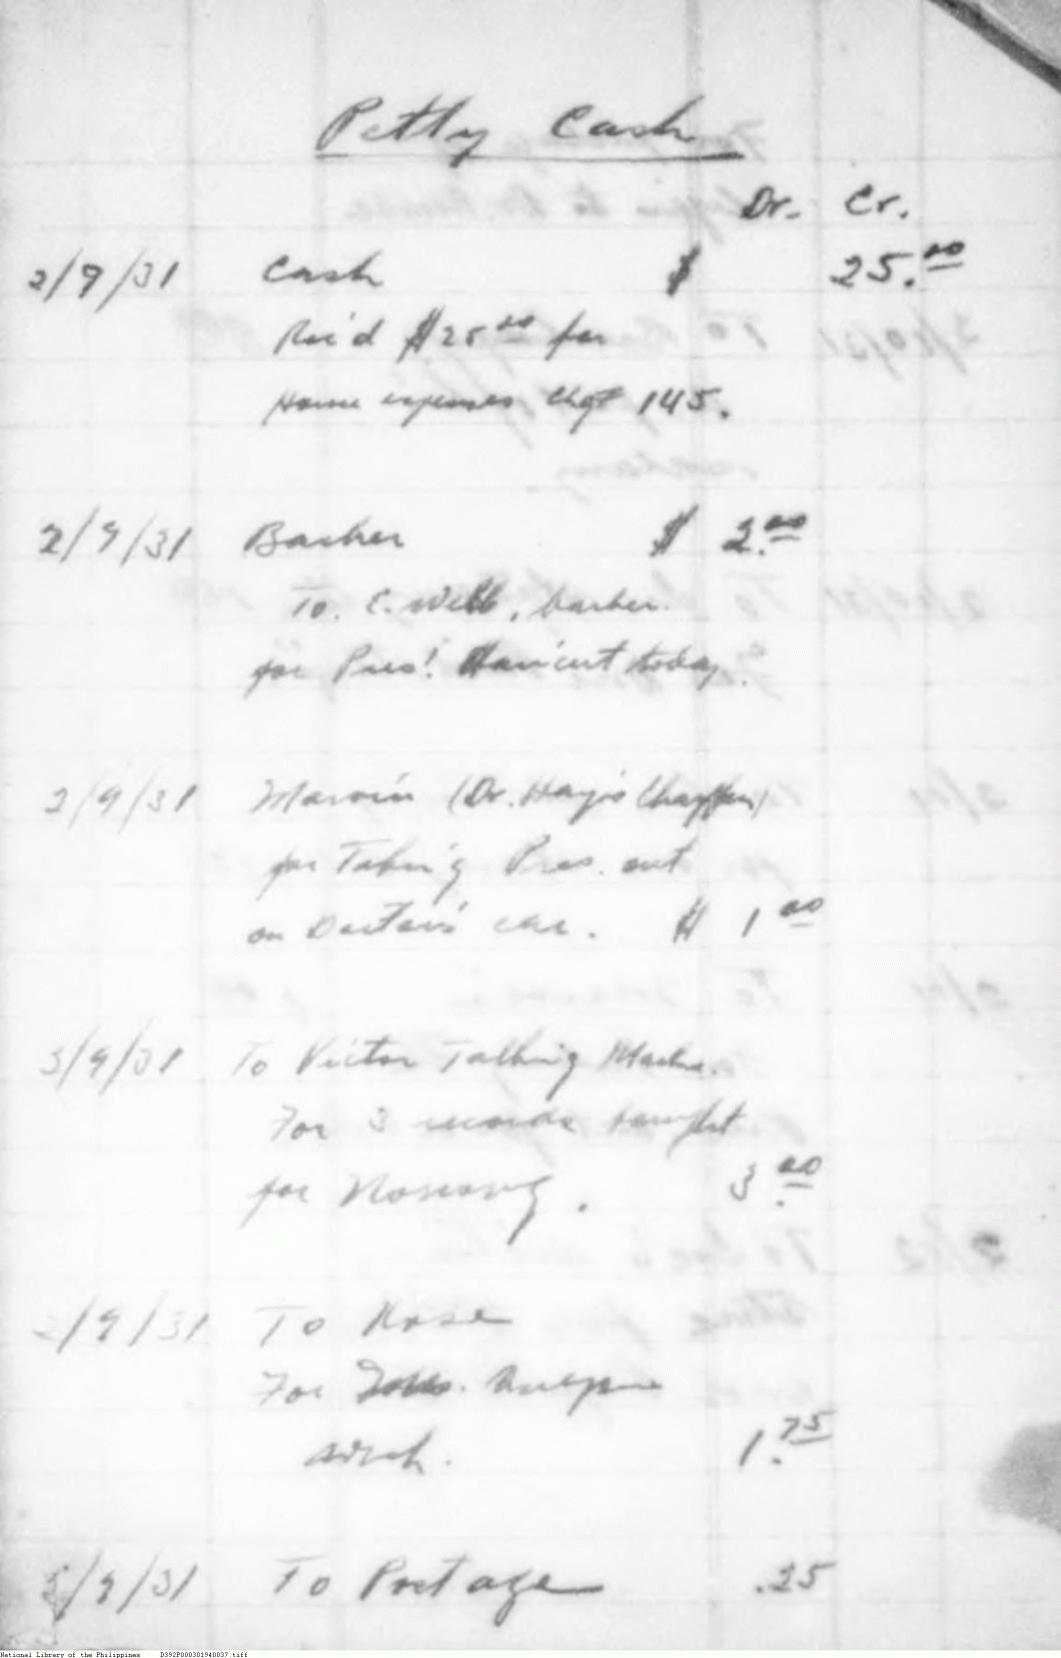 Petty Cash
Dr. Cr.
2/9/31 Cash $ 25.00
Rec'd $25.00 for
Home expenses Chgd 145.
2/9/31 Barber $ 2.00
To. C. Webb, barber
for Pres! Haircut today.
2/9/31 Marvin (Dr. Hay's Chauffeur)
for Taking Pres. out
on Doctor's car. $ 1.00
2/9/31 To Victor Talking Machine
For 3 records bought
for Nonong. 3.00
2/9/31 To Rose
For
1.75
2/9/31 To Postage .25
National Library of the Philippines D392P000301940037.tiff